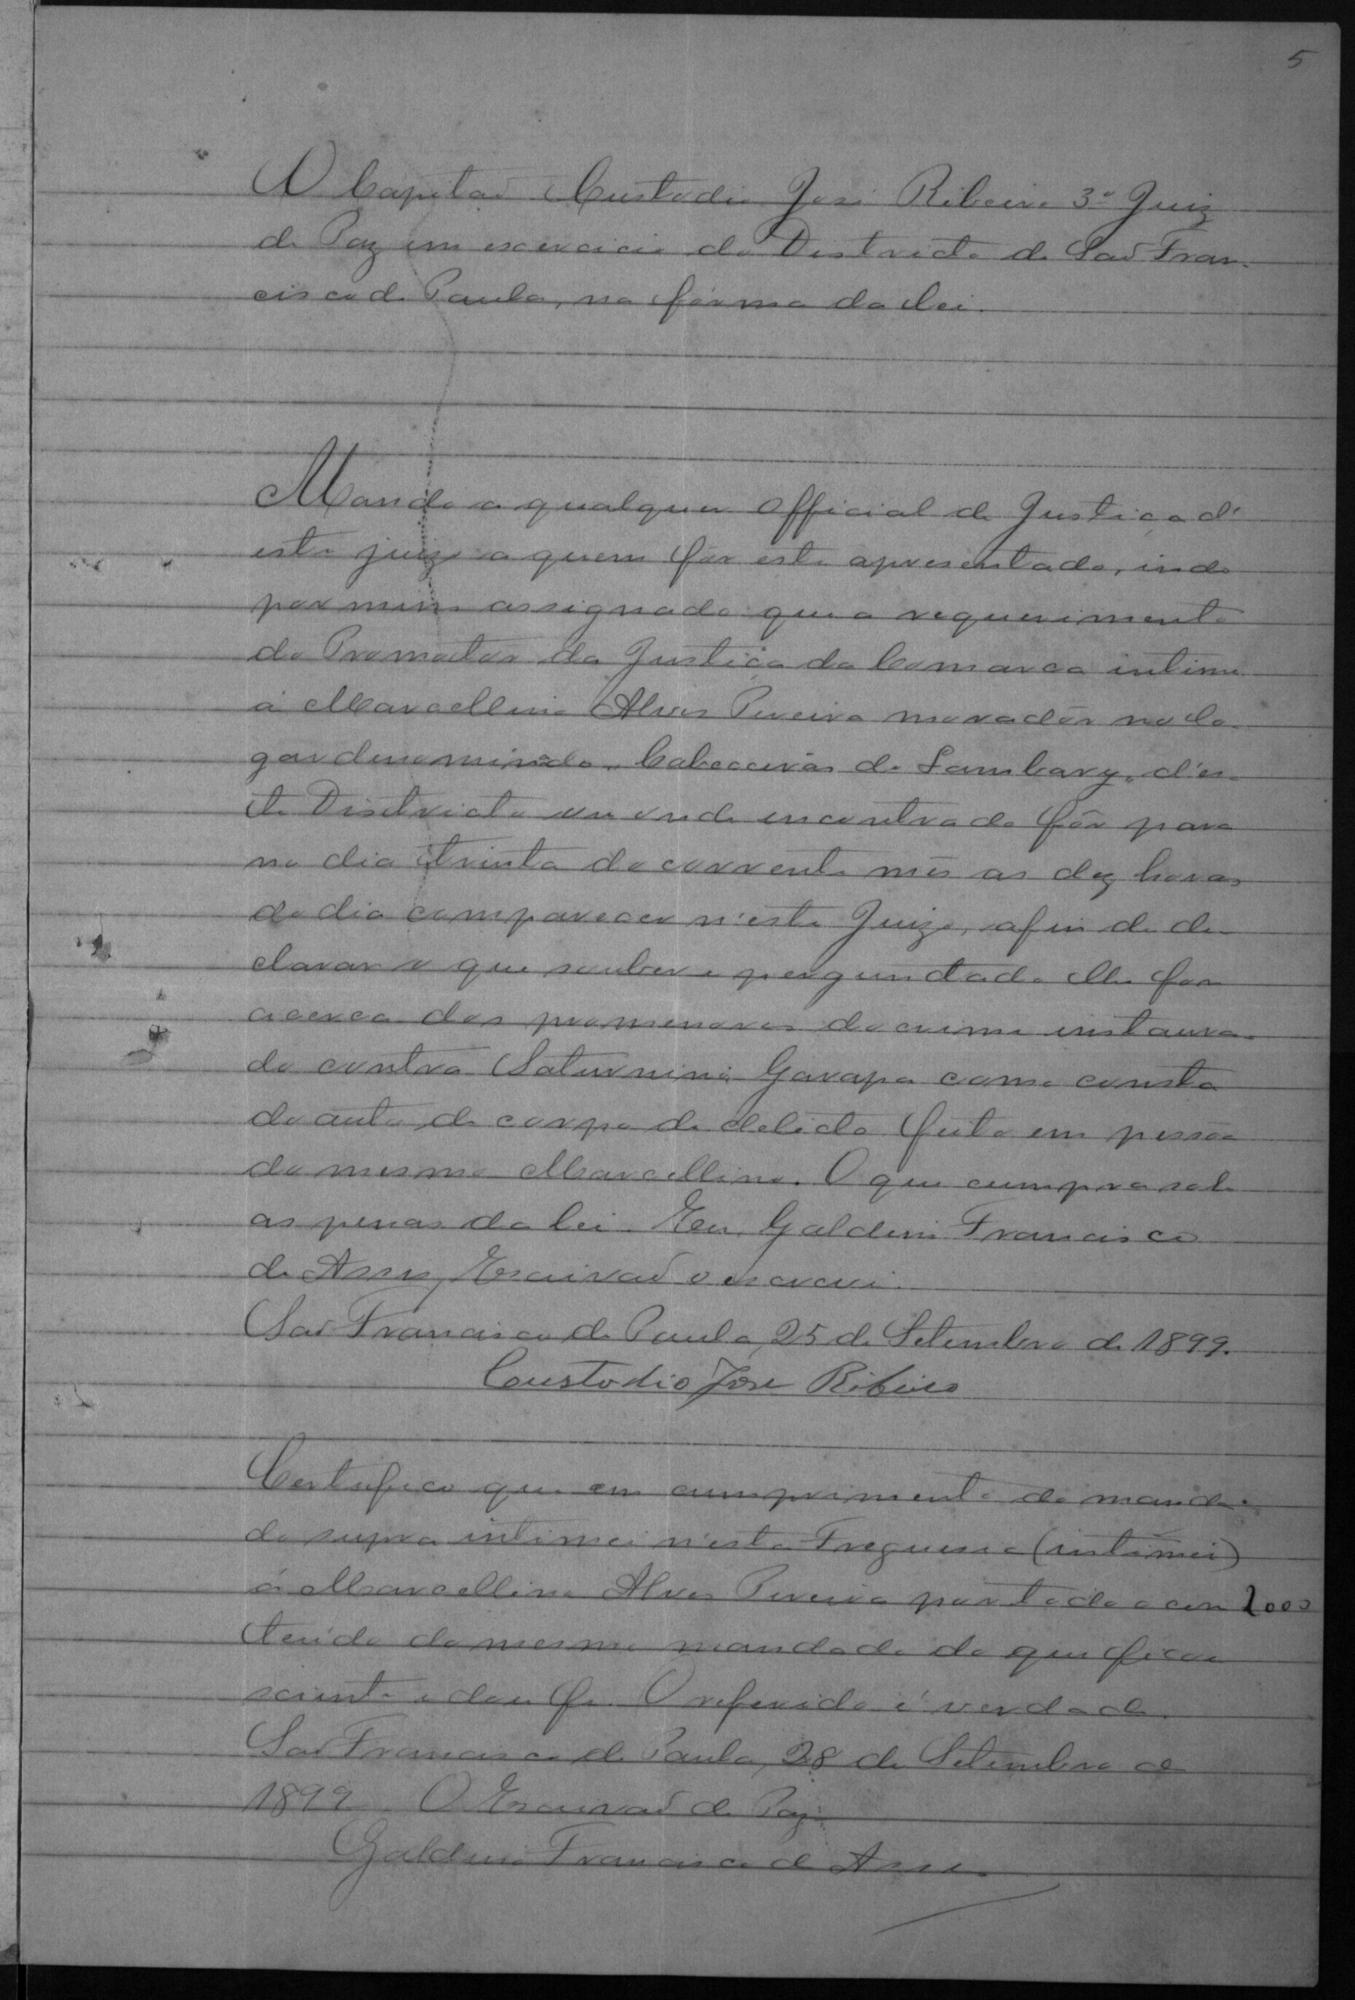 5
O Capitão Custodio José Ribeiro 3º Juiz
de Paz em exercicio do Districto de São Fran-
cisco de Paula, na fórma da lei.
Mando a qualquer Official de Justiça d'
este juizo a quem fôr este apresentado, indo
por mim assignado que a requerimento
do Promotor da Justiça da Comarca intime
á Marcellino Alves Pereira moradôr no lo-
gar denominado Cabeceiras do Lambary, d'es-
te Districto ou onde encontrado fôr para
no dia trinta do corrente mês as dez horas
do dia comparecer n'este Juizo, afim de de-
clarar o que souber e perguntado lhe for
acerca dos promenores do crime instaura-
do contra Saturnino Garapa como consta
do auto de corpo de delicto feito em pessoa
do mesmo Marcellino. O que cumpra sob
as penas da lei. Eu, Galdino Francisco
de Assis, Escrivão o escrevi.
São Francisco de Paula, 25 de Setembro de 1899.
Custodio Jose Ribeiro
Certifico que em cumprimento do manda-
do supra intimei n'esta Freguesia (intimei)
á Marcellino Alves Pereira por todo o con
2000
teúdo do mesmo mandado do que ficou
sciente e dou fe. O referido é verdade.
São Francisco de Paula, 28 de Setembro de
1899. O Escrivão de Paz:
Galdino Francisco de Assis.